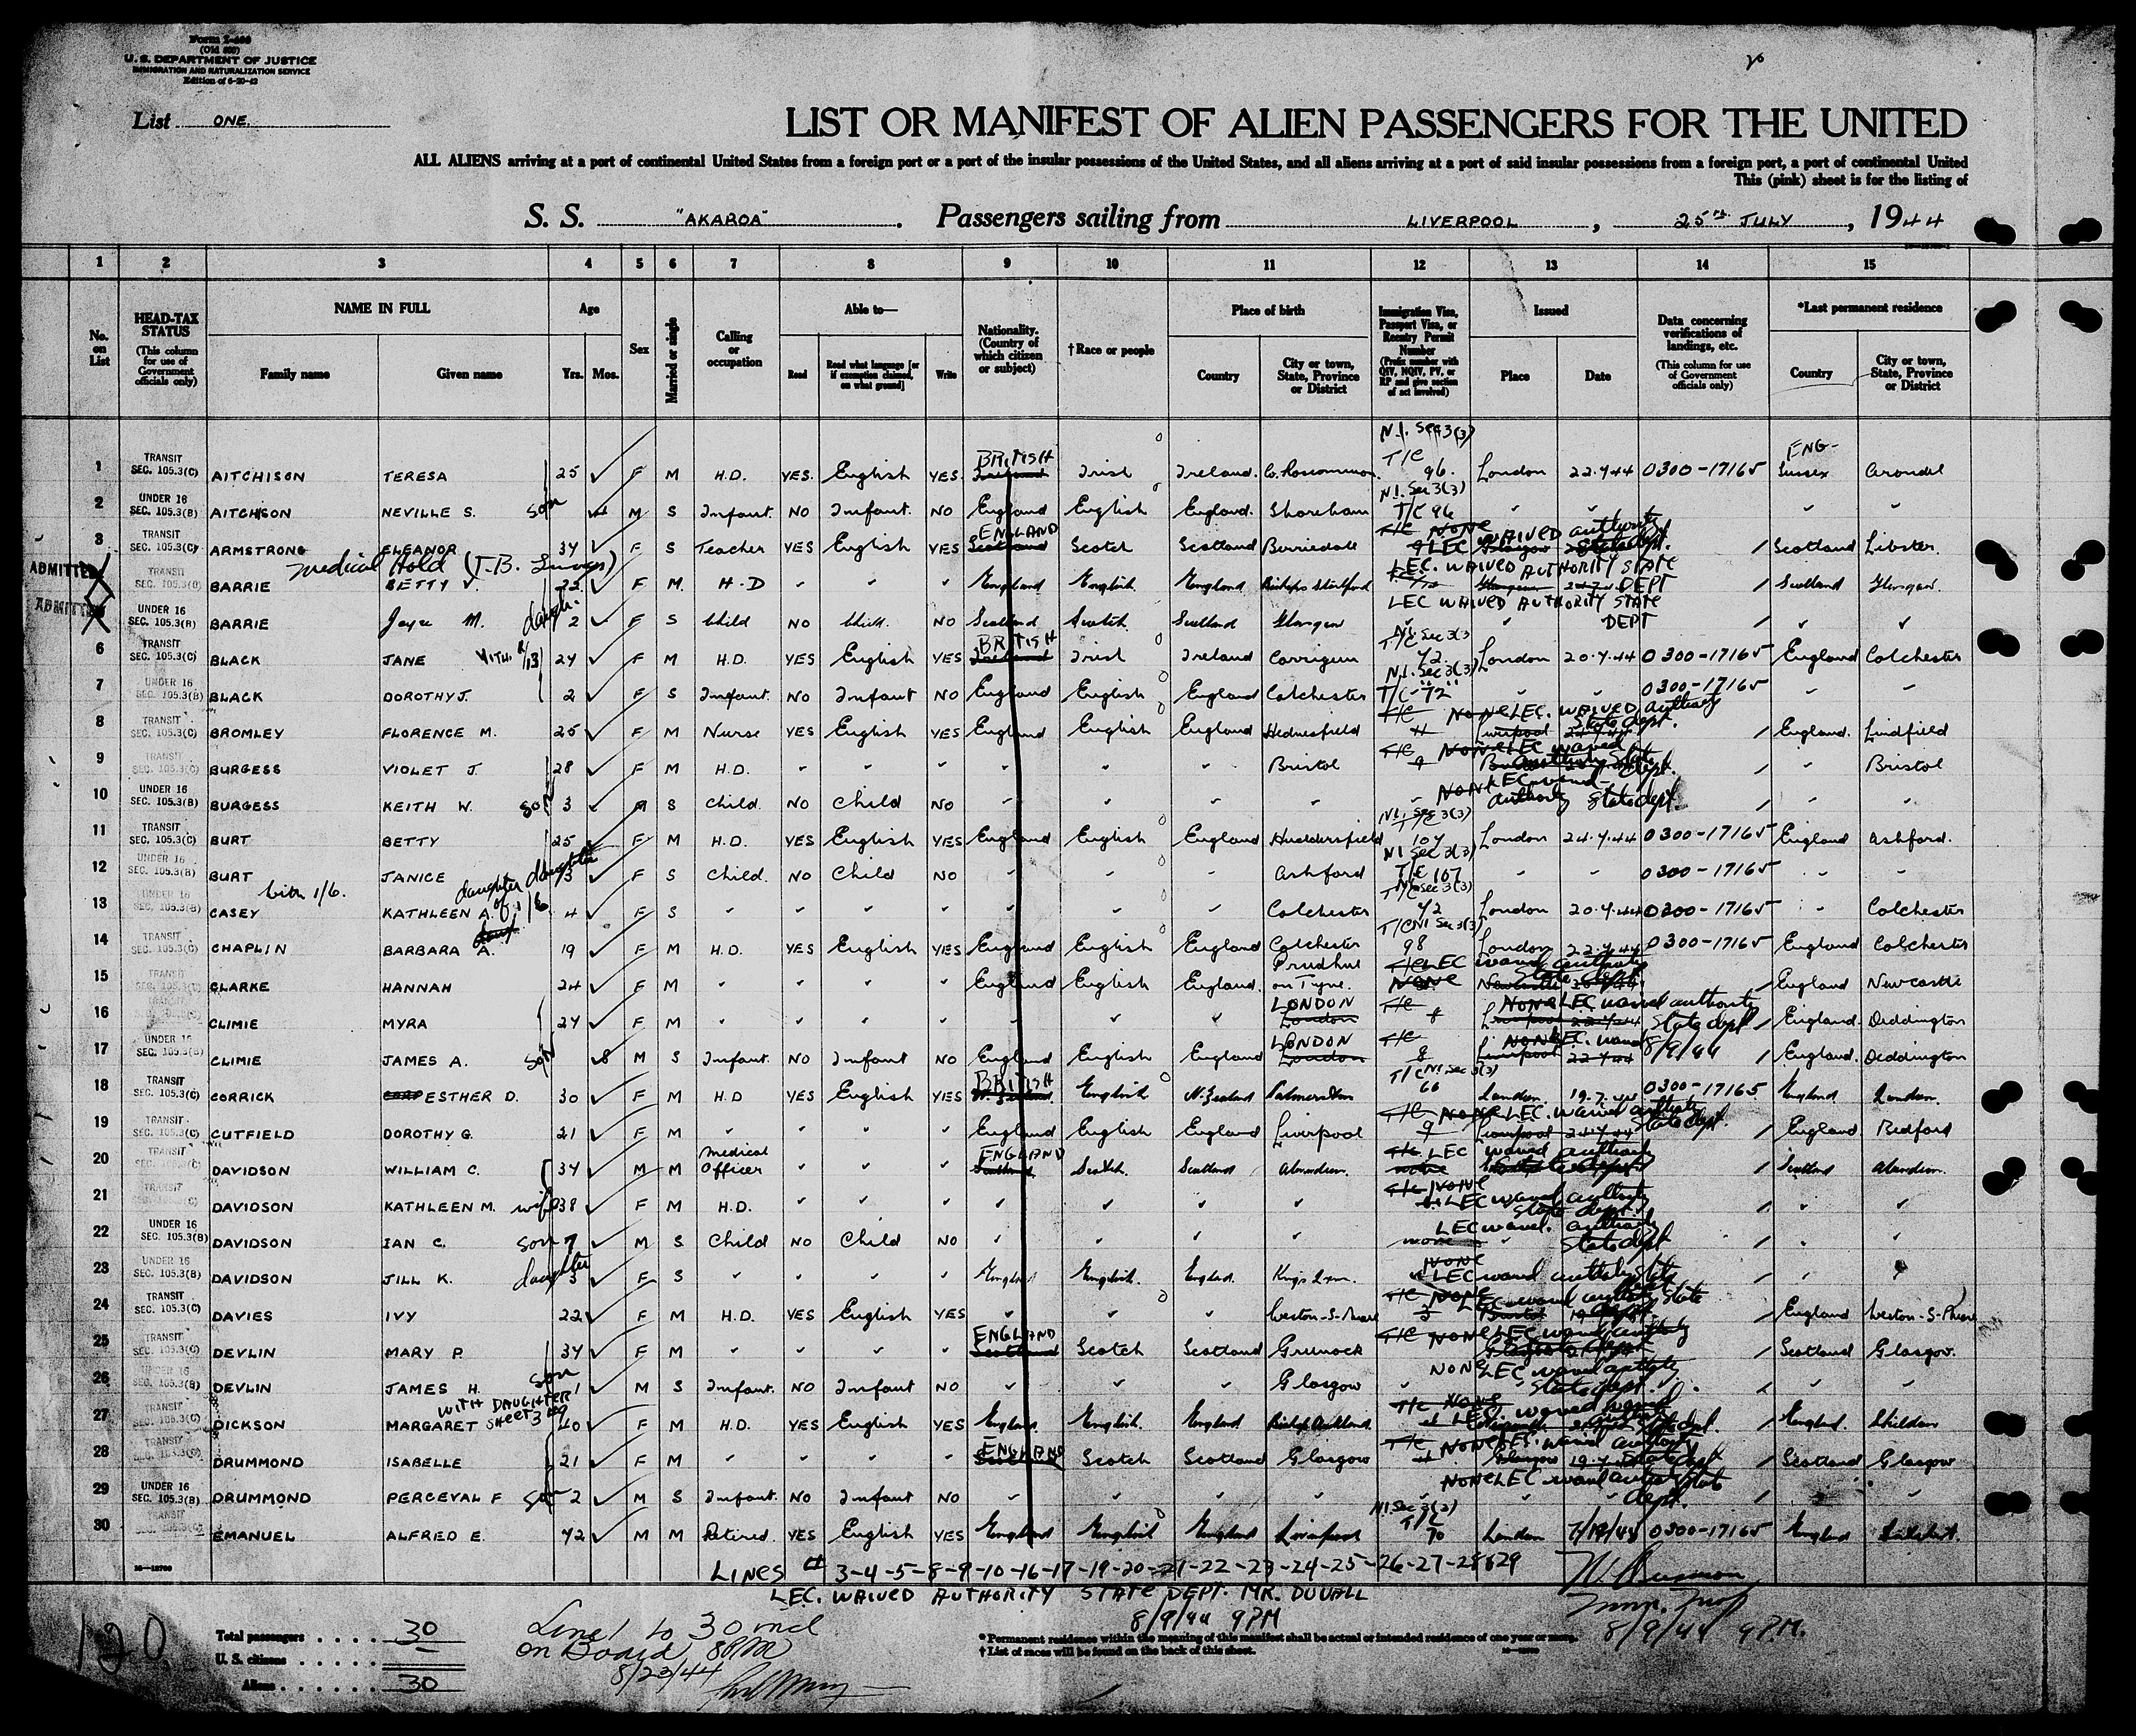 Form I-466
(Old 500)
U. S. DEPARTMENT OF JUSTICE
IMMIGRATION AND NATURALIZATION SERVICE
Edition of 6-20-42
List ONE.
LIST OR MANIFEST OF ALIEN PASSENGERS FOR THE UNITED
ALL ALIENS arriving at a port of continental United States from a foreign port or a port of the insular possessions of the United States, and all aliens arriving at a port of said insular possessions from a foreign port, a port of continental United
This (pink) sheet is for the listing of
S. S. "AKAROA". Passengers sailing from LIVERPOOL, 25TH JULY, 1944
1 2 3 4 5 6 7 8 9 10 11 12 13 14 15
No. on List
HEAD-TAX STATUS (This column for use of Government officials only)
NAME IN FULL Family name Given name
Age Yrs. Mos.
Sex
Married or single
Calling or occupation
Able to— Read Read what language [or if exemption claimed, on what ground] Write
Nationality. (Country of which citizen or subject)
†Race or people
Place of birth Country City or town, State, Province or District
Immigration Visa, Passport Visa, or Reentry Permit Number (Prefix number with QIV, NQIV, PV, or RP and give section of act involved)
Issued Place Date
Data concerning verifications of landings, etc. (This column for use of Government officials only)
*Last permanent residence Country City or town, State, Province or District
1 TRANSIT SEC. 105.3(C) AITCHISON TERESA 25 F M H.D. YES. English YES. BRITISH Ireland Irish Ireland. Co. Roscommon. N.I. Sec 3(3) T/C 96. London 22.7.44 0300-17165 ENG- Sussex Arundel
2 UNDER 16 SEC. 105.3(B) AITCHISON NEVILLE S. son M S Infant. NO Infant. NO England English England. Shoreham N.I. Sec 3(3) T/C 96 " " " "
3 TRANSIT SEC. 105.3(C) ARMSTRONG ELEANOR 34 F S Teacher YES English YES ENGLAND Scotland Scotch Scotland Berriedale T/C NONE LEC WAIVED authority State dept. Scotland Libster.
Medical Hold (T.B.
ADMITTED TRANSIT SEC. 105.3(C) BARRIE BETTY V. 22 F M. H.D " " " England English. England Bishops Stortford LEC. WAIVED AUTHORITY STATE DEPT Scotland Glasgow.
ADMITTED UNDER 16 SEC. 105.3(B) BARRIE Joyce M. daugh. 2 F S Child NO Child. NO Scotland Scotch. Scotland Glasgow LEC WAIVED AUTHORITY STATE DEPT " "
6 TRANSIT SEC. 105.3(C) BLACK JANE WITH 1/13 24 F M H.D. YES English YES BRITISH Ireland Irish Ireland Corrigeen N.I. Sec 3(3) T/C 72. London 20.7.44 0300-17165 England Colchester
7 UNDER 16 SEC. 105.3(B) BLACK DOROTHY J. 2 F S Infant. NO Infant NO England English England Colchester N.I. Sec 3(3) T/C-"72" " " 0300-17165 " "
8 TRANSIT SEC. 105.3(C) BROMLEY FLORENCE M. 25 F M Nurse YES English YES England English England Hednesfield T/C 4 NONE LEC. WAIVED authority State dept. Liverpool England. Lindfield
9 TRANSIT SEC. 105.3(C) BURGESS VIOLET J. 28 F M H.D. " " " " " " Bristol T/C 9 NONE LEC waived authority State dept. " Bristol
10 UNDER 16 SEC. 105.3(B) BURGESS KEITH W. son 3 M S Child. NO Child NO " " " " NONE LEC waived- authority State dept " "
11 TRANSIT SEC. 105.3(C) BURT BETTY 25 F M H.D. YES English YES England English England Huddersfield N.I. Sec 3(3) T/C 107 London 24.7.44 0300-17165 England Ashford.
12 UNDER 16 SEC. 105.3(B) BURT JANICE daughter 3 F S Child. NO Child NO " " " Ashford NI Sec 3(3) T/C 107 " " 0300-17165 " "
13 UNDER 16 SEC. 105.3(B) with 1/6. CASEY KATHLEEN A. daughter of 1/6 4 F S " " " " " " Colchester NI Sec 3(3) T/C 72 London 20.7.44 0300-17165 " Colchester
14 TRANSIT SEC. 105.3(C) CHAPLIN BARBARA A. 19 F M H.D. YES English YES England English England Colchester T/C NI Sec 3(3) 98 London 22.7.44 0300-17165 England Colchester
15 TRANSIT SEC. 105.3(C) CLARKE HANNAH 24 F M " " " " England English England. Prudhoe on Tyne. T/C NONE LEC waived authority State dept Newcastle England Newcastle
16 TRANSIT SEC. 105.3(C) CLIMIE MYRA 24 F M " " " " " " " LONDON London T/C 8 NONE LEC waived authority State dept Liverpool 22.7.44 England. Deddington
17 UNDER 16 SEC. 105.3(B) CLIMIE JAMES A. son 8 M S Infant. NO Infant NO England English England LONDON London T/C 8 NONE LEC. waived Liverpool 22.7.44 8/9/44 England. Deddington
18 TRANSIT SEC. 105.3(C) CORRICK ESTHER D. 30 F M H.D YES English YES BRITISH N. Zealand English N. Zealand Palmerston T/C NI Sec 3(3) 66 London 19.7.44 0300-17165 England London.
19 TRANSIT SEC. 105.3(C) CUTFIELD DOROTHY G. 21 F M " " " " England English England Liverpool T/C 9 NONE LEC. waived authority State dept. Liverpool 24.7.44 England Bedford
20 TRANSIT SEC. 105.3(C) DAVIDSON WILLIAM C. 34 M M Medical Officer " " " ENGLAND Scotland Scotch. Scotland Aberdeen. T/C none LEC waived authority State dept Scotland Aberdeen.
21 TRANSIT DAVIDSON KATHLEEN M. wife 38 F M H.D. " " " " " " " T/C NONE LEC waived authority State dept. " "
22 UNDER 16 SEC. 105.3(B) DAVIDSON IAN C. son 7 M S Child NO Child NO " " " " none LEC waived. authority State dept " "
23 UNDER 16 SEC. 105.3(B) DAVIDSON JILL K. daughter 3 F S " " " " England English. England. Kings Lynn. NONE LEC waived authority State " "
24 TRANSIT SEC. 105.3(C) DAVIES IVY 22 F M H.D. YES English YES " " " Weston-S-Mare T/C NONE LEC waived authority State dept Bristol England Weston-S-Mare
25 TRANSIT SEC. 105.3(C) DEVLIN MARY P. 34 F M " " " " ENGLAND Scotland Scotch Scotland Greenock T/C NONE LEC waived authority State dept Glasgow Scotland Glasgow.
26 UNDER 16 SEC. 105.3(B) DEVLIN JAMES H. son 1 M S Infant. NO Infant NO " " " Glasgow NONE LEC waived authority State dept. " "
27 TRANSIT SEC. 105.3(C) DICKSON MARGARET WITH DAUGHTER SHEET 3 40 F M H.D. YES English YES England. English. England Bishop Auckland T/C NONE LEC waived State dept. England. Shildon
28 TRANSIT SEC. 105.3(C) DRUMMOND ISABELLE 21 F M " " " " ENGLAND Scotland Scotch Scotland Glasgow T/C NONE LEC. waived authority State dept Glasgow 19.7.44 Scotland Glasgow
29 UNDER 16 SEC. 105.3(B) DRUMMOND PERCEVAL F son 2 M S Infant. NO Infant NO " " " " NONE LEC waived authority State dept. " "
30 TRANSIT SEC. 105.3(C) EMANUEL ALFRED E. 72 M M Retired. YES English YES England English England Liverpool N.I. Sec 3(3) T/C 70 London 7/19/44 0300-17165 England
16—12700 LINES # 3-4-5-8-9-10-16-17-19-20-21-22-23-24-25-26-27-28&29
LEC. WAIVED AUTHORITY STATE DEPT. MR. DUVALL
8/9/44 9PM
8/9/44 9 P.M.
120
Total passengers 30
U. S. citizens —
Aliens 30
Line 1 to 30 incl
on Board 8PM
8/23/44
*Permanent residence within the meaning of this manifest shall be actual or intended residence of one year or more.
†List of races will be found on the back of this sheet.